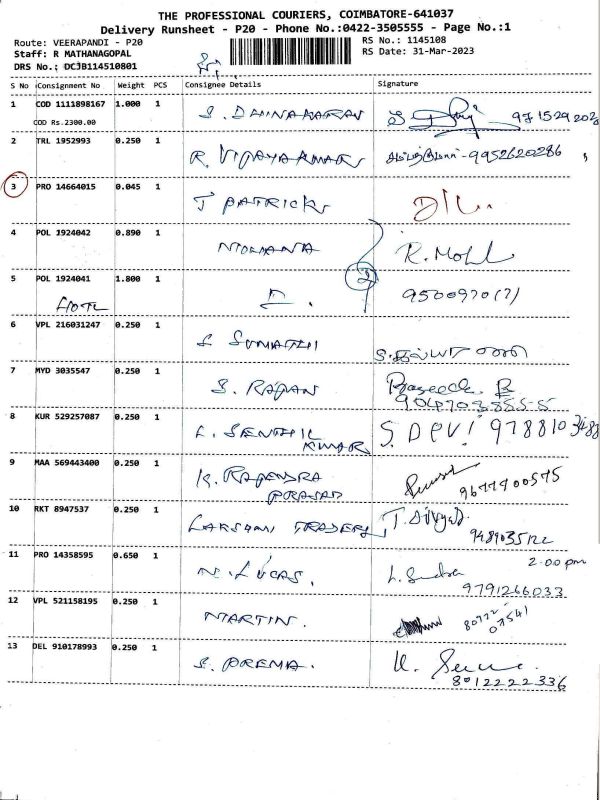 THE PROFESSIONAL COURIERS, COIMBATORE-641037
Delivery Runsheet - P20 - Phone No.:0422-3505555 - Page No.:1
Route: VEERAPANDI - P20
RS No.: 1145108
Staff: R MATHANAGOPAL
RS Date: 31-Mar-2023
DRS No.: DCJB114510801
S No Consignment No Weight PCS Consignee Details Signature
1 COD 1111898167 1.000 1 S. DHINAKARAN
COD Rs.2300.00
2 TRL 1952993 0.250 1 R. VIJAYAKUMAR - 9952620286
3 PRO 14664015 0.045 1 J PATRICK
4 POL 1924042 0.890 1 R. Mohl
5 POL 1924041 1.800 1 I. 9500970(7)
2
6 VPL 216031247 0.250 1 S SUMATHI
7 MYD 3035547 0.250 1 S. RAJAN
8 KUR 529257087 0.250 1 SENTHIL KUMAR S. DEVI 9788103488
9 MAA 569443400 0.250 1 K. RAJENDRA PRASAD 9677900575
10 RKT 8947537 0.250 1 LAKSHMI TRADERS T. Divya
11 PRO 14358595 0.650 1 N. LUCAS. 2.00 pm
9791266033
12 VPL 521158195 0.250 1 MARTIN. 80722 07541
13 DEL 910178993 0.250 1 S. PREMA.
8012222336